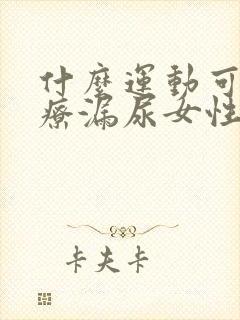 什麼運動可
療漏尿女性
卡夫卡